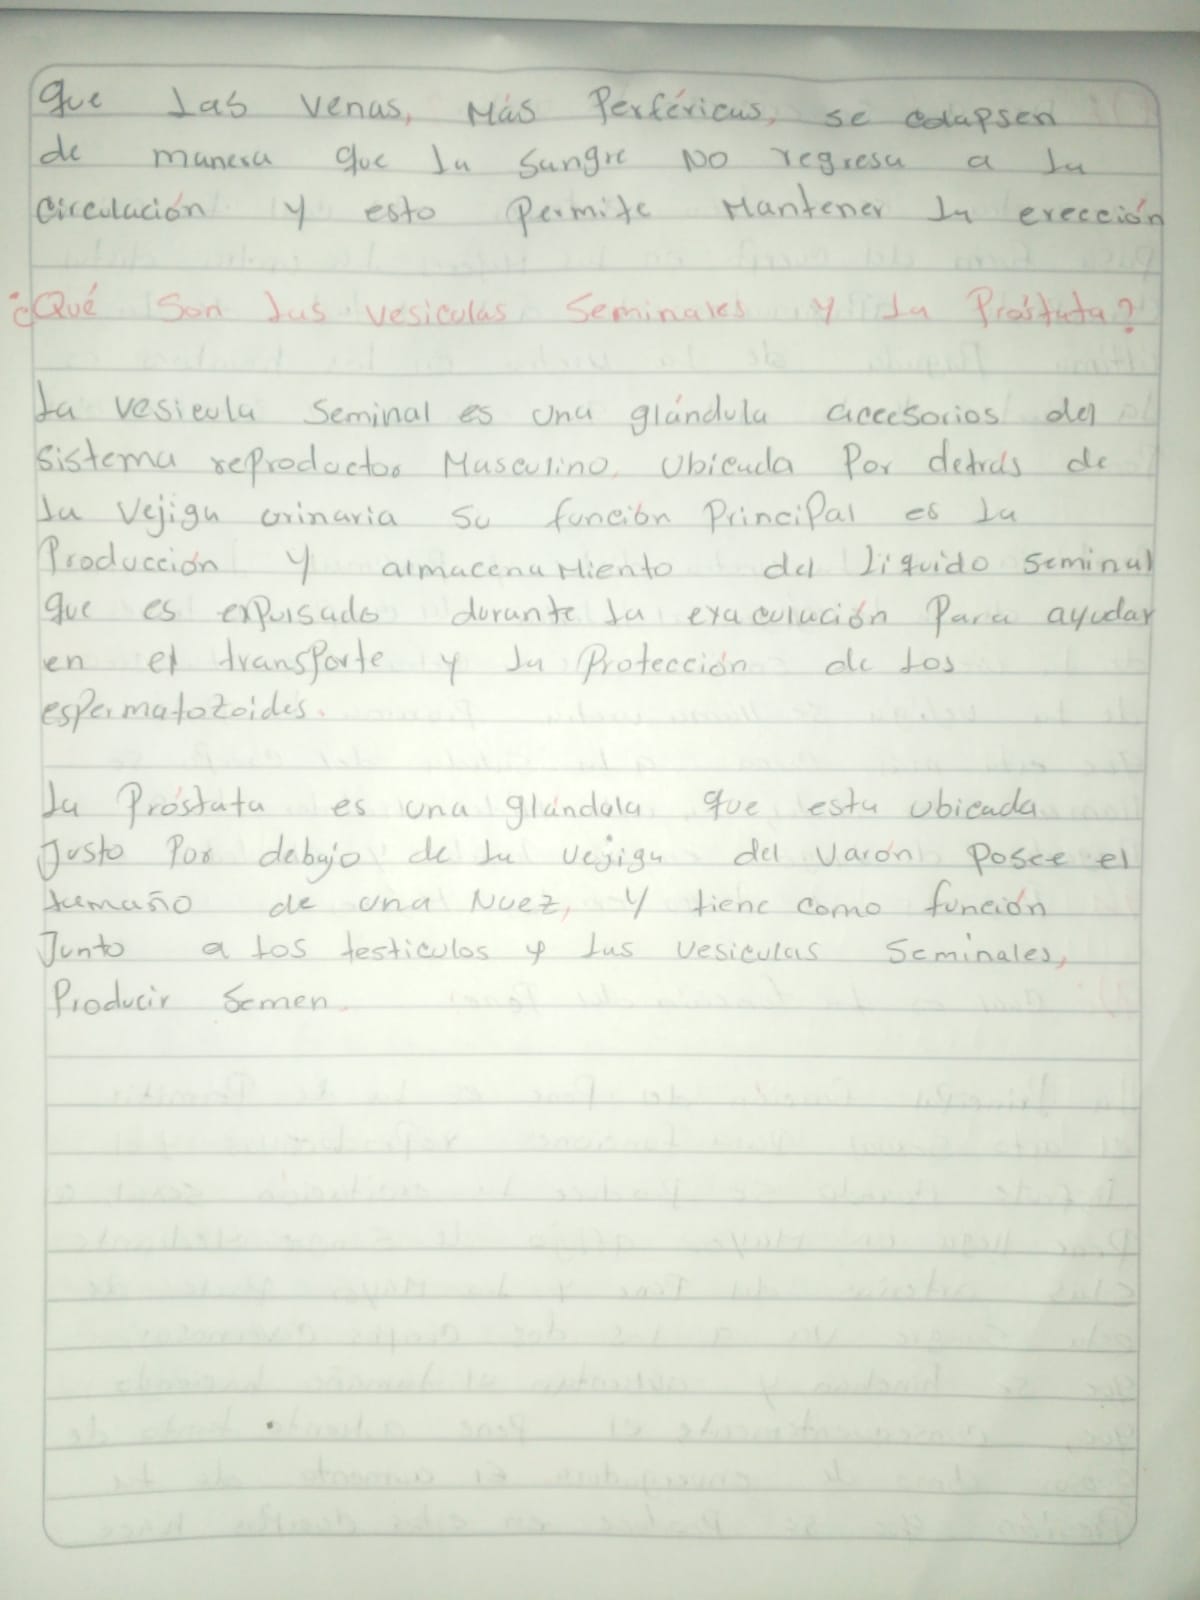 que las venas, más perféricus, se colapsen
de manera que la sangre no regresa a la
circulación y esto permite mantener la erección
¿Qué son las vesiculas seminales y la próstata?
La vesicula seminal es una glándula accesorios del
sistema reproductor masculino. ubicada por detrás de
la vejiga urinaria su función principal es la
producción y almacenamiento del liquido seminal
que es expulsado durante la eyaculación para ayudar
en el transporte y la protección de los
espermatozoides.
La próstata es una glándula que esta ubicada
justo por debajo de la vejiga del varón posee el
tamaño de una nuez, y tiene como función
junto a los testiculos y las vesiculas seminales,
producir semen.